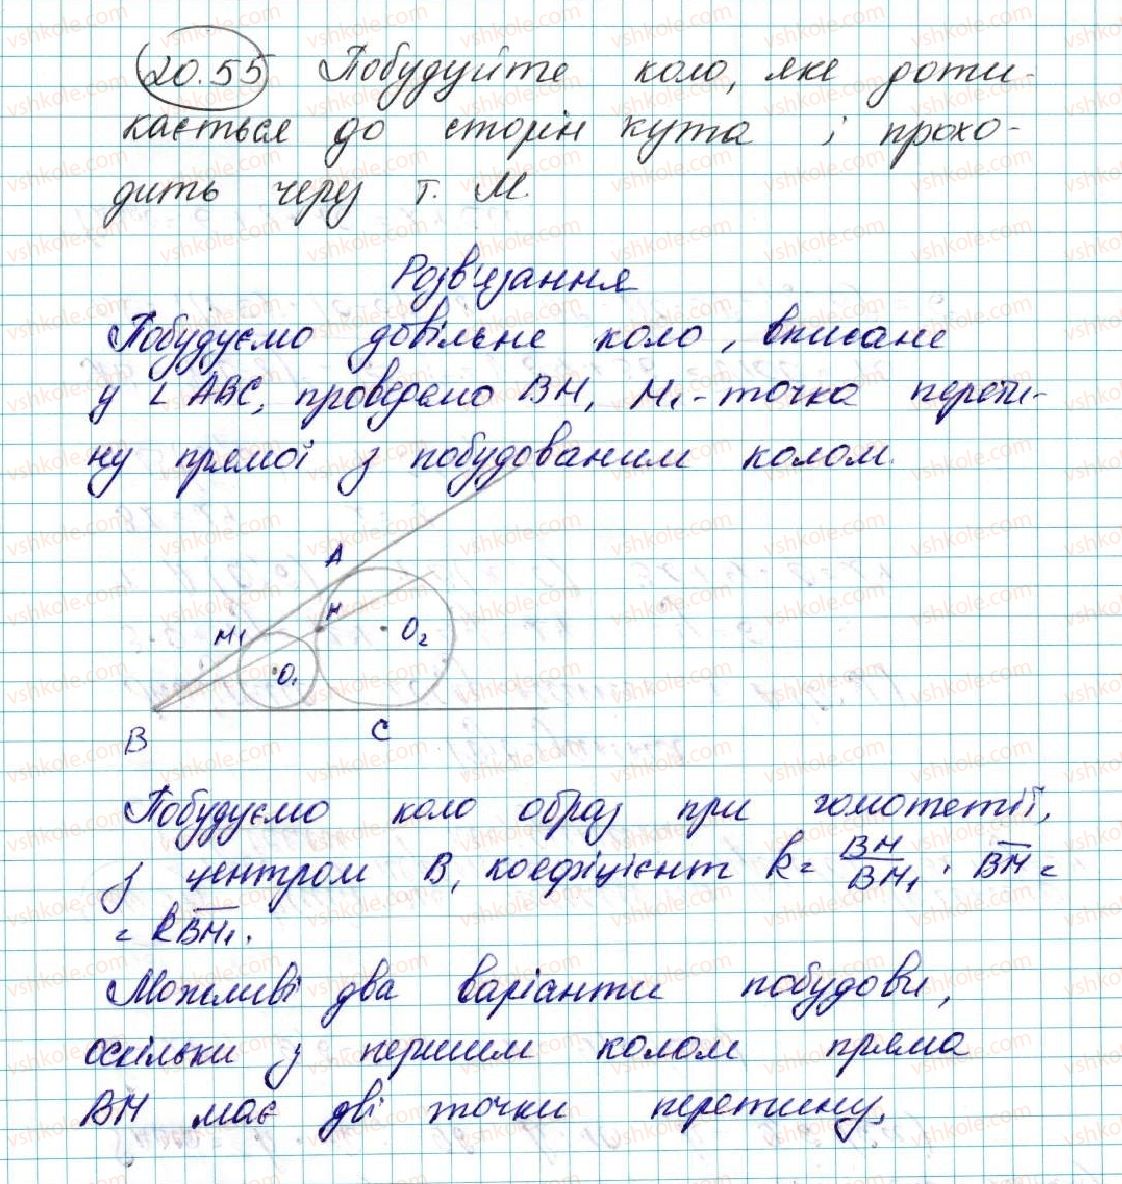 20.55 Побудуйте коло, яке доти-
кається до сторін кута і прохо-
дить через т. М.
Розв'язання
Побудуємо довільне коло, вписане
у ∠ ABC, проведемо BM, M₁ - точка перети-
ну прямої з побудованим колом.
A
M₁
M
O₂
O₁
B
C
Побудуємо коло образ при гомотетії,
з центром B, коефіцієнт k = BM/BM₁, BM =
= kBM₁.
Можливі два варіанти побудови,
оскільки з першим колом пряма
BM має дві точки перетину.